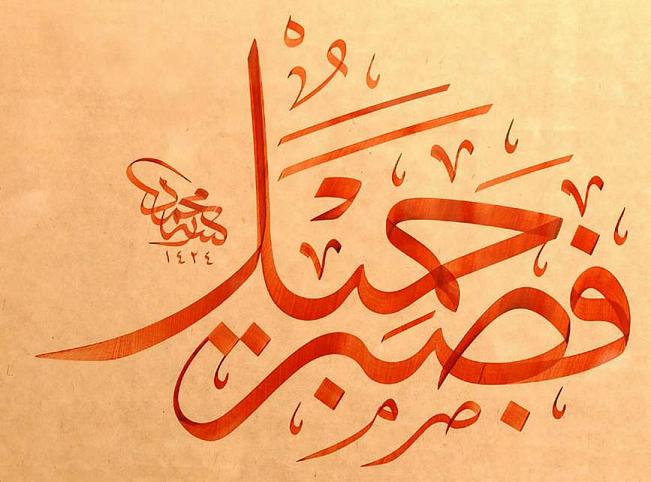 فصبر جميل
كتبه محمد
١٤٢٤